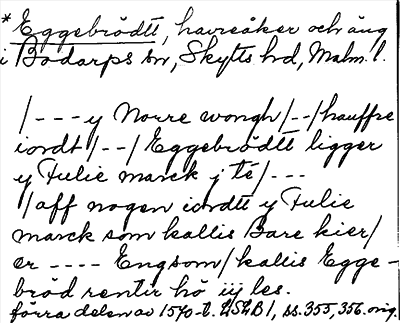 * Eggebrödtt, havreåker och äng
i Bodarps sn, Skytts hd, Malm. l.
/ - - - y Norre wongh /--/ hauffre
iordt /--/ Eggebrödtt ligger
y Fulie marck j té / - - -
/ aff nogen iordtt y Fulie
marck som kallis Bare kier /
er - - - - Engsom / kallis Egge-
bröd rentir hö iij les.
förra delen av 1540-t. LSLB 1, ss. 355, 356. orig.